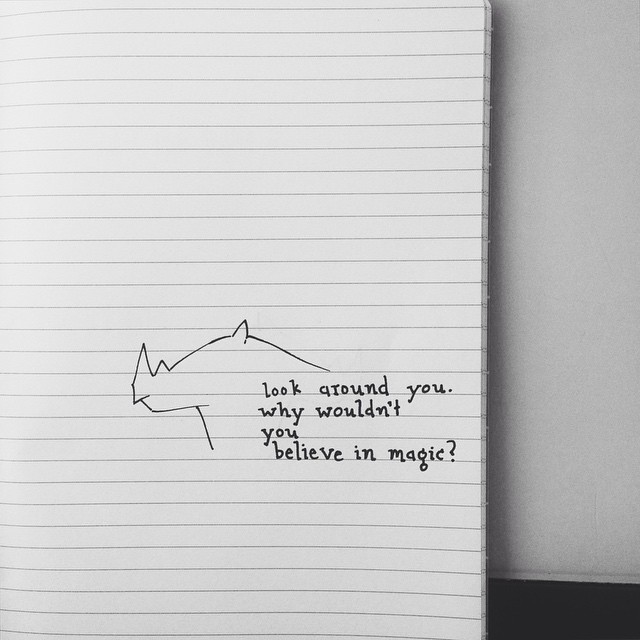 look around you.
why wouldn't
you
believe in magic?